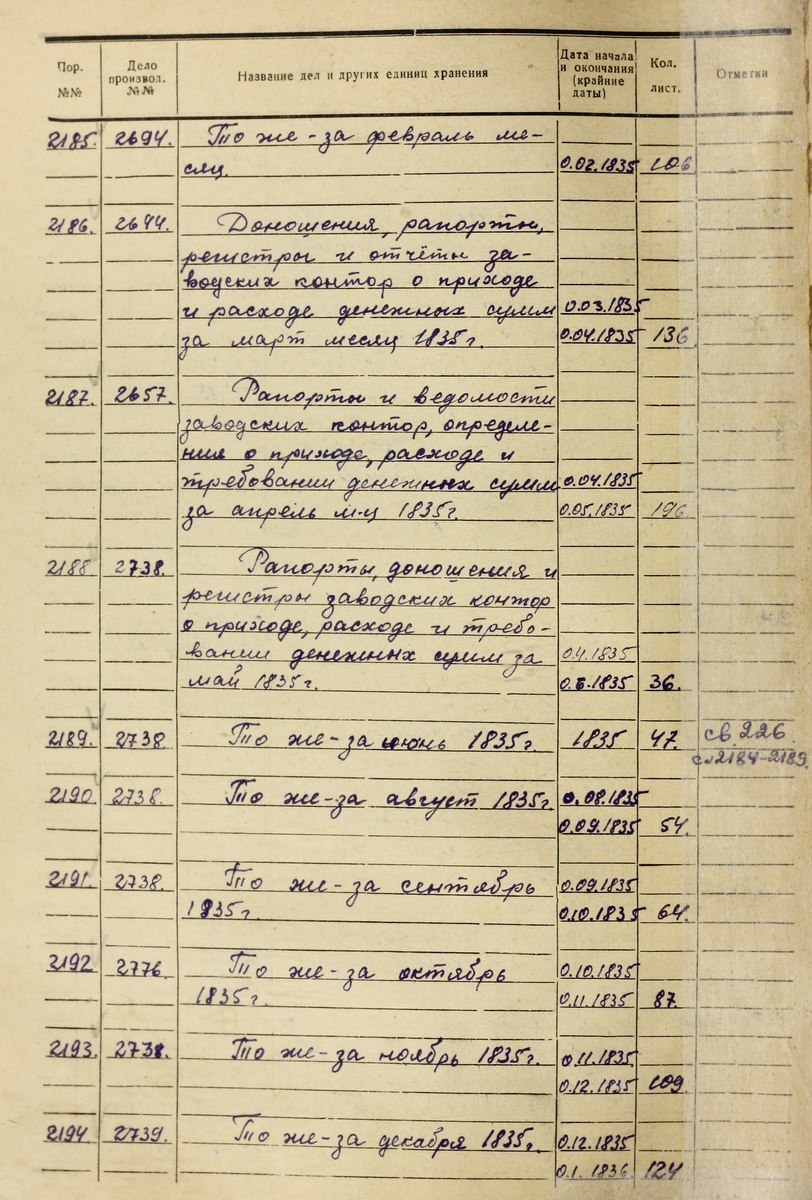 Пор. №№ Дело производ. №№ Название дел и других единиц хранения Дата начала и окончания (крайние даты) Кол. лист. Отметки
2185. 2694. То же - за февраль ме-
сяц. 0.02.1835 106
2186. 2694. Доношения, рапорты,
регистры и отчёты за-
водских контор о приходе
и расходе денежных сумм 0.03.1835
за март месяц 1835г. 0.04.1835 136
2187. 2657. Рапорты и ведомости
заводских контор, определе-
ния о приходе, расходе и
требовании денежных сумм 0.04.1835
за апрель м-ц 1835г. 0.05.1835 196
2188 2738. Рапорты, доношения и
регистры заводских контор
о приходе, расходе и требо-
вании денежных сумм за 0.4.1835
май 1835г. 0.6.1835 36.
2189. 2738 То же - за июнь 1835г. 1835 47. св. 226
сл 2184-2189.
2190 2738. То же - за август 1835г 0.08.1835
0.09.1835 54.
2191. 2738. То же - за сентябрь 0.09.1835
1835г. 0.10.1835 64.
2192 2776. То же - за октябрь 0.10.1835
1835г. 0.11.1835 87.
2193. 2738. То же - за ноябрь 1835г. 0.11.1835.
0.12.1835 109
2194 2739. То же - за декабря 1835г. 0.12.1835
0.1. 1836. 124